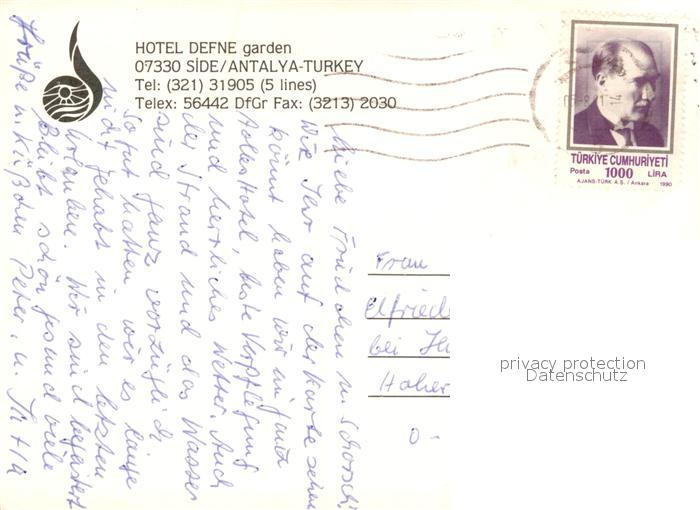 HOTEL DEFNE garden
07330 SİDE/ANTALYA-TURKEY
Tel: (321) 31905 (5 lines)
Telex: 56442 DfGr Fax: (3213) 2030
TÜRKİYE CUMHURİYETİ
Posta 1000 LİRA
AJANS-TÜRK A.Ş. / Ankara 1990
Liebe Friedchen u. Schorschi
Wie Ihr auf der Karte sehen
könnt haben wir ein gutes
Hotel, beste Verpflegung
und herrliches Wetter. Auch
der Strand und das Wasser
sind ganz vorzüglich
So gut hatten wir es lange
nicht gehabt in den letzten
Urlauben. Wir sind begeistert
Bleibt schön gesund viele
Grüße u. Küßchen Peter u. Jutta
Frau
Elfried
bei
Haher
privacy protection
Datenschutz